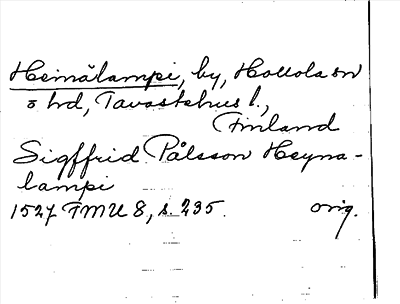 Heinälampi, by, Hollola sn
o hd, Tavastehus l.,
Finland
Sigffrid Pålsson Heyna-
lampi
1527 FMU 8, s. 235. orig.